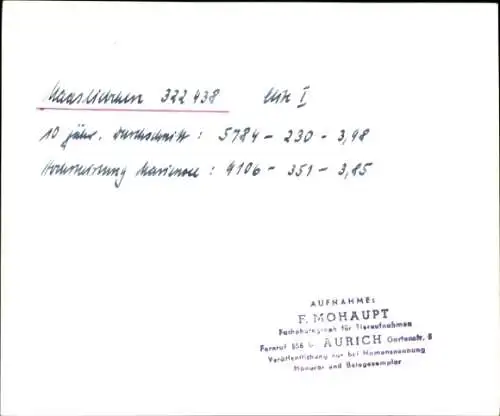 322 438 Elite I
10 jähr. Durchschnitt : 5784 – 230 – 3,98
: – 351 – 3,85
AUFNAHME:
F. MOHAUPT
Fachphotograph für Tieraufnahmen
Fernruf 856 AURICH Gartenstr. 8
Veröffentlichung nur bei Namensnennung
Honorar und Belegexemplar